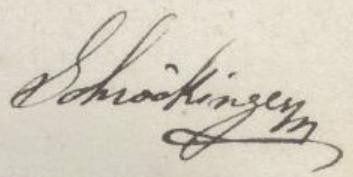 Schröckinger